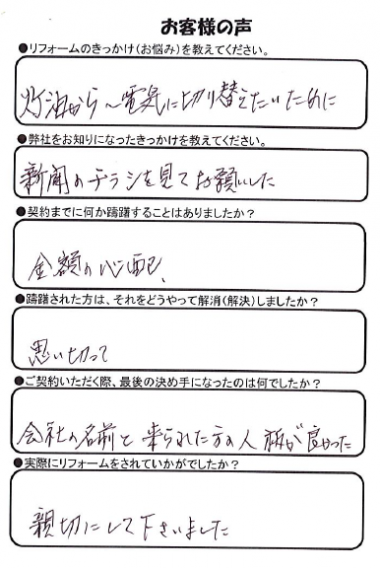 お客様の声
●リフォームのきっかけ(お悩み)を教えてください。
灯油から〜電気に切り替えたいために
●弊社をお知りになったきっかけを教えてください。
新聞のチラシを見てお願いした
●契約までに何か躊躇することはありましたか?
金額の心配、
●躊躇された方は、それをどうやって解消(解決)しましたか?
思い切って
●ご契約いただく際、最後の決め手になったのは何でしたか?
会社の名前と来られた方の人柄が良かった
●実際にリフォームをされていかがでしたか?
親切にして下さいました